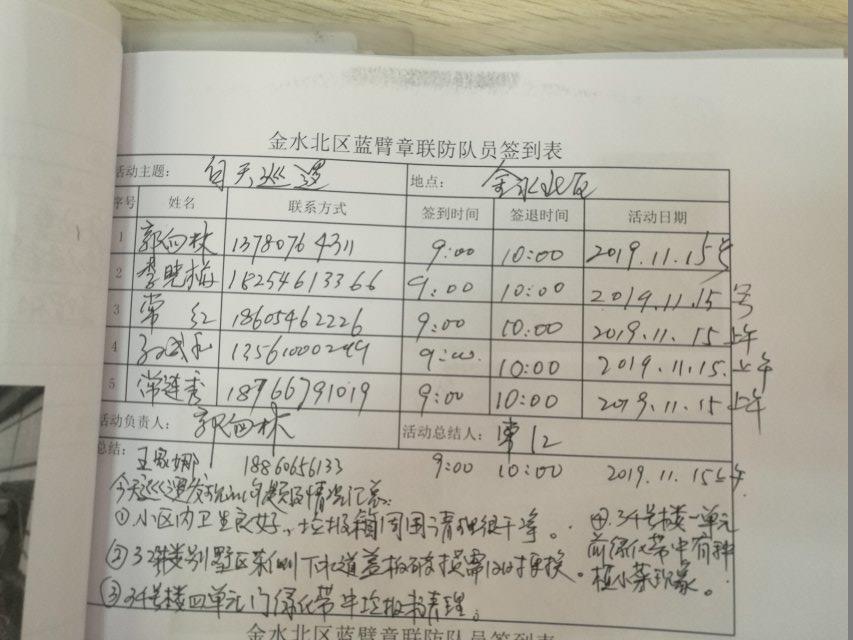 金水北区蓝臂章联防队员签到表
活动主题： 白天巡逻 地点： 金水北区
序号 姓名 联系方式 签到时间 签退时间 活动日期
1 郭向林 13780764311 9:00 10:00 2019.11.15号
2 李晓梅 18254613366 9:00 10:00 2019.11.15号
3 常红 18605462226 9:00 10:00 2019.11.15上午
4 13561000249 9:00 10:00 2019.11.15.上午
5 常连秀 18766791019 9:00 10:00 2019.11.15上午
活动负责人： 郭向林 活动总结人： 常红
总结： 王 娜 18860656133 9:00 10:00 2019.11.15上午
今天巡逻发现的问题及情况汇总：
①小区内卫生良好，垃圾箱周围清理很干净。
②32#楼别墅区东侧下水道盖板破损需及时更换。
③34号楼四单元门绿化带中垃圾未清理。
④.34号楼一单元
前绿化带中有种
植小菜现象。
金水北区蓝臂章联防队员签到表